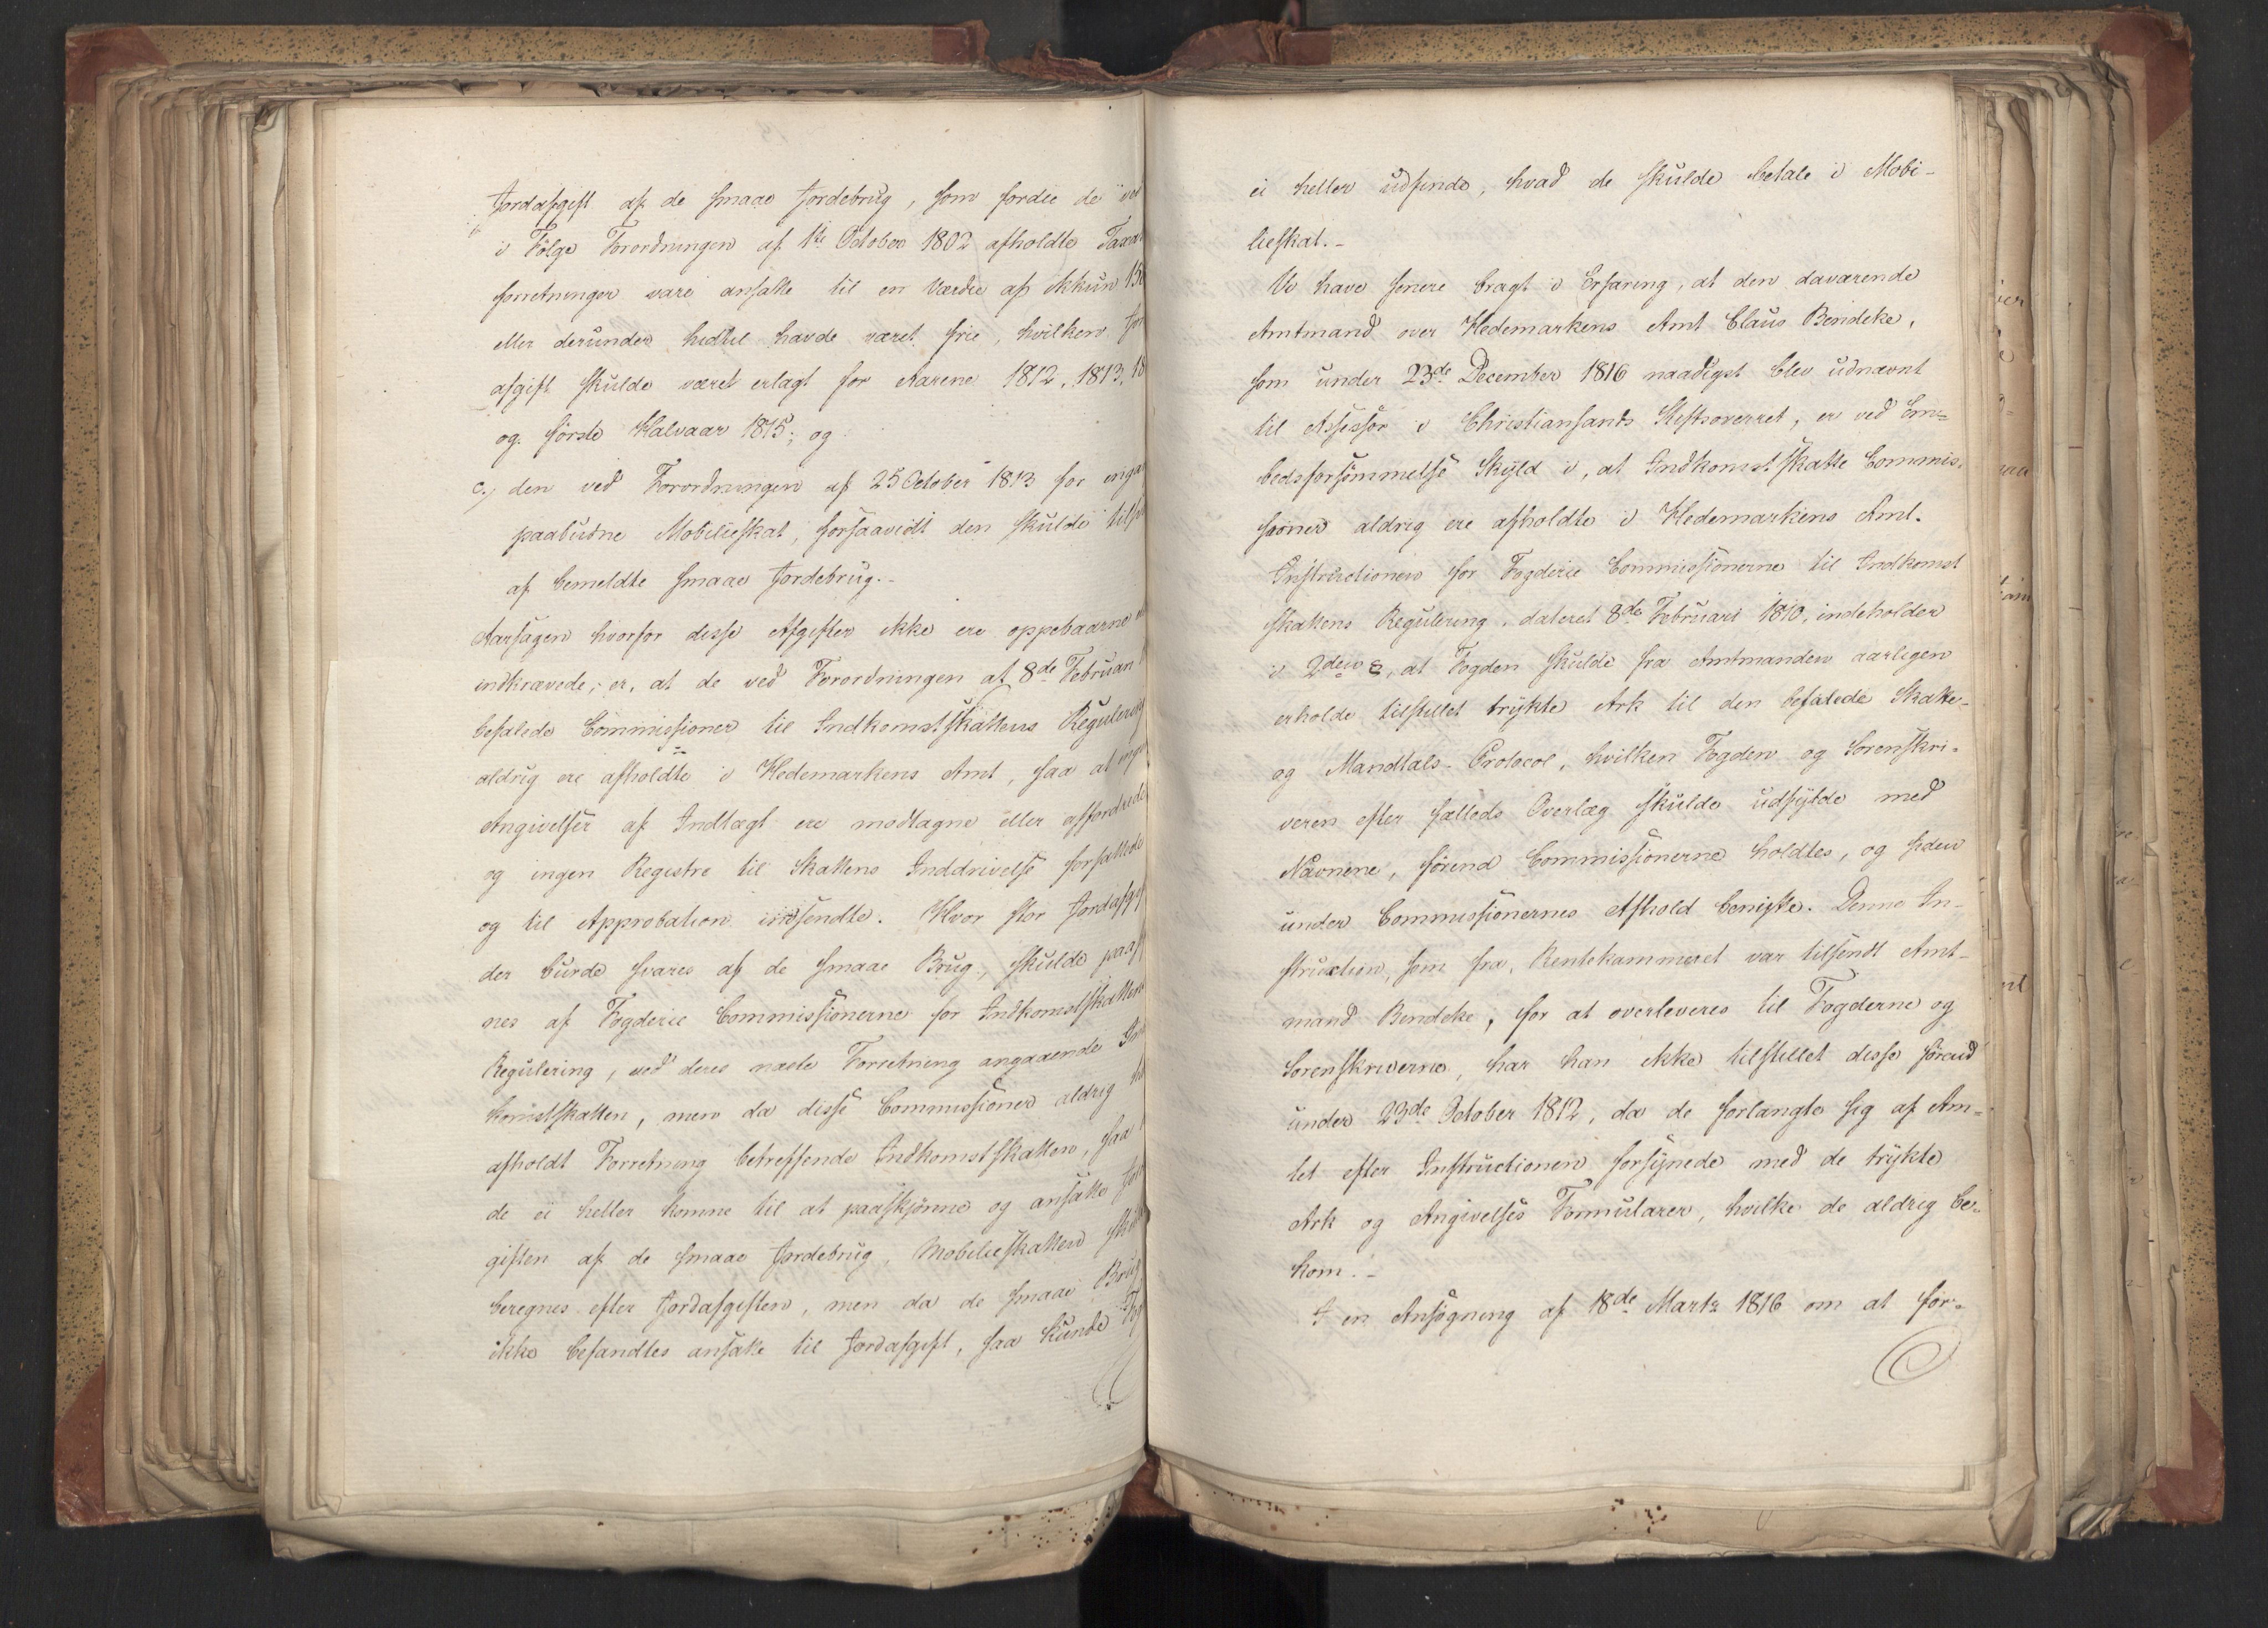 Jordafgift af de smaae Jordebrug, som fordie de ved
i Følge Forordningen af 1ste October 1802 afholdte
forretninger vare ansatte til en Værdie af ikkun
eller derunder, hidtil havde været frie, hvilken
afgift skulde været erlagt for Aarene 1812, 1813,
og første Halvaar 1815; og
c.) den ved Forordningen af 25 October 1813 for
paabudne Mobilieskat, forsaavidt den skulde
af bemeldte smaae Jordebrug.-
Aarsagen hvorfor disse Afgifter ikke ere oppebaarne
indkrævede, er, at de ved Forordningen af 8de Februari
befalede Commissioner til Indkomstskattens
aldrig ere afholdte i Hedemarkens Amt, saa at
Angivelser af Indtægt ere modtagne eller affordrede
og ingen Registre til Skattens Inddrivelse forfattede
og til Approbation indsendte. Hvor stor
der burde svares af de smaae Brug, skulde
nes af Fogderie Commissionerne for Indkomstskattens
Regulering, ved deres næste Forretning angaaende
komstskatten, men da disse Commissioner aldrig
afholdt Forretning betreffende Indkomstskatten, saa
de ei heller komme til at paaskjønne og ansætte
giften af de smaae Jordebrug. Mobilieskatten
beregnes efter Jordafgiften, men da de smaae Brug
ikke befandtes ansatte til Jordafgift, saa kunde
ei heller udfinde, hvad de skulde betale i Mobi-
lieskat.-
Vi have senere bragt i Erfaring, at den daværende
Amtmand over Hedemarkens Amt Claus Bendeke,
som under 23de December 1816 naadigst blev udnævnt
til Assessor i Christiansands Stiftsoverret, er ved Em-
bedsforsømmelse Skyld i, at Indkomstskatte Commis-
sioner aldrig ere afholdte i Hedemarkens Amt.
Instructionen for Fogderie Commissionerne til Indkomst
skattens Regulering, dateret 8de Februari 1810, indeholder
i 2den §, at Fogden skulde fra Amtmanden aarligen
erholde tilstillet trykte Ark til den befalede Skatte-
og Mandtals-Protocol, hvilken Fogden og Sorenskri-
veren efter fælleds Overlæg skulde udfylde med
Navnene, førend Commissionerne holdtes, og siden
under Commissionernes Afhold benytte. Denne In-
struction, som fra Rentekammeret var tilsendt Amt-
mand Bendeke, for at overleveres til Fogderne og
Sorenskriverne, har han ikke tilstillet disse førend
under 23de October 1812, da de forlangte sig af Am-
tet efter Instructionen forsynede med de trykte
Ark og Angivelses Formularer, hvilke de aldrig be-
kom.-
I en Ansøgning af 18de Marts 1816 om at for-